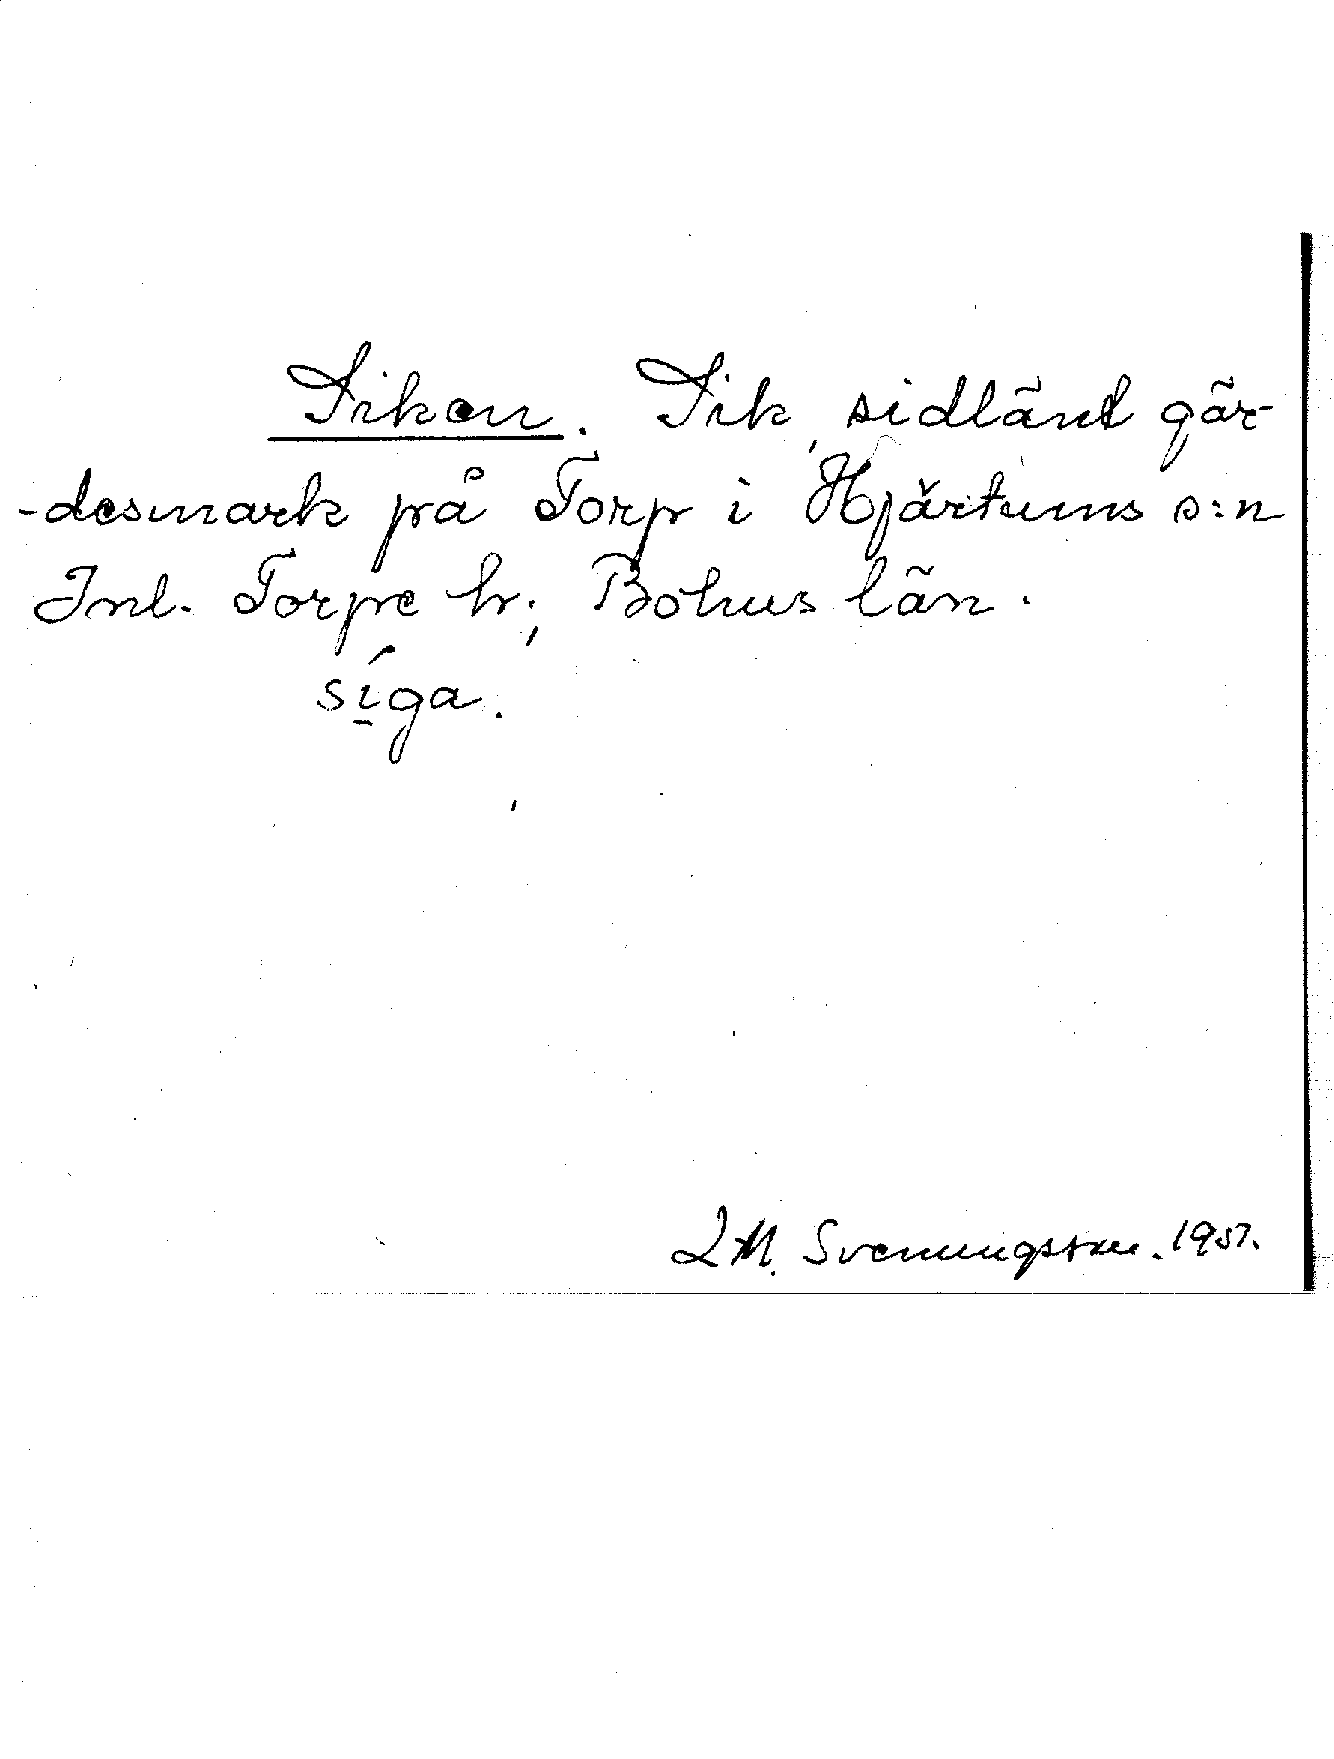 Siken. Sik, sidlänt gär-
-desmark på Torp i Hjärtums s:n
Inl. Torpe hr; Bohus län.
síga.
L M. Svenungsson. 1957.